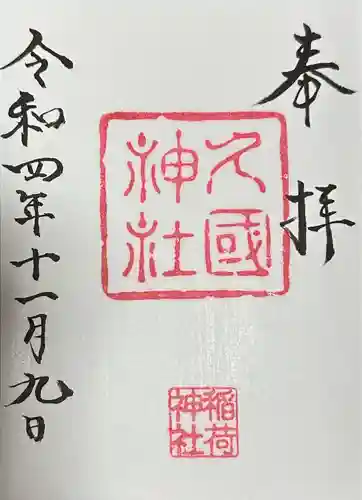 奉拝
久國神社
稲荷神社
令和四年十一月九日